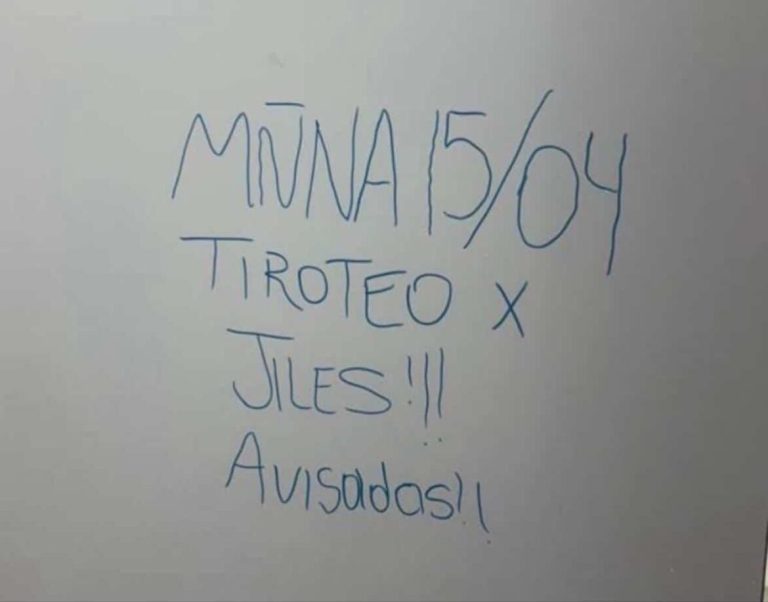 MÑNA 15/04
TIROTEO X
JILES!!!
Avisadas!!